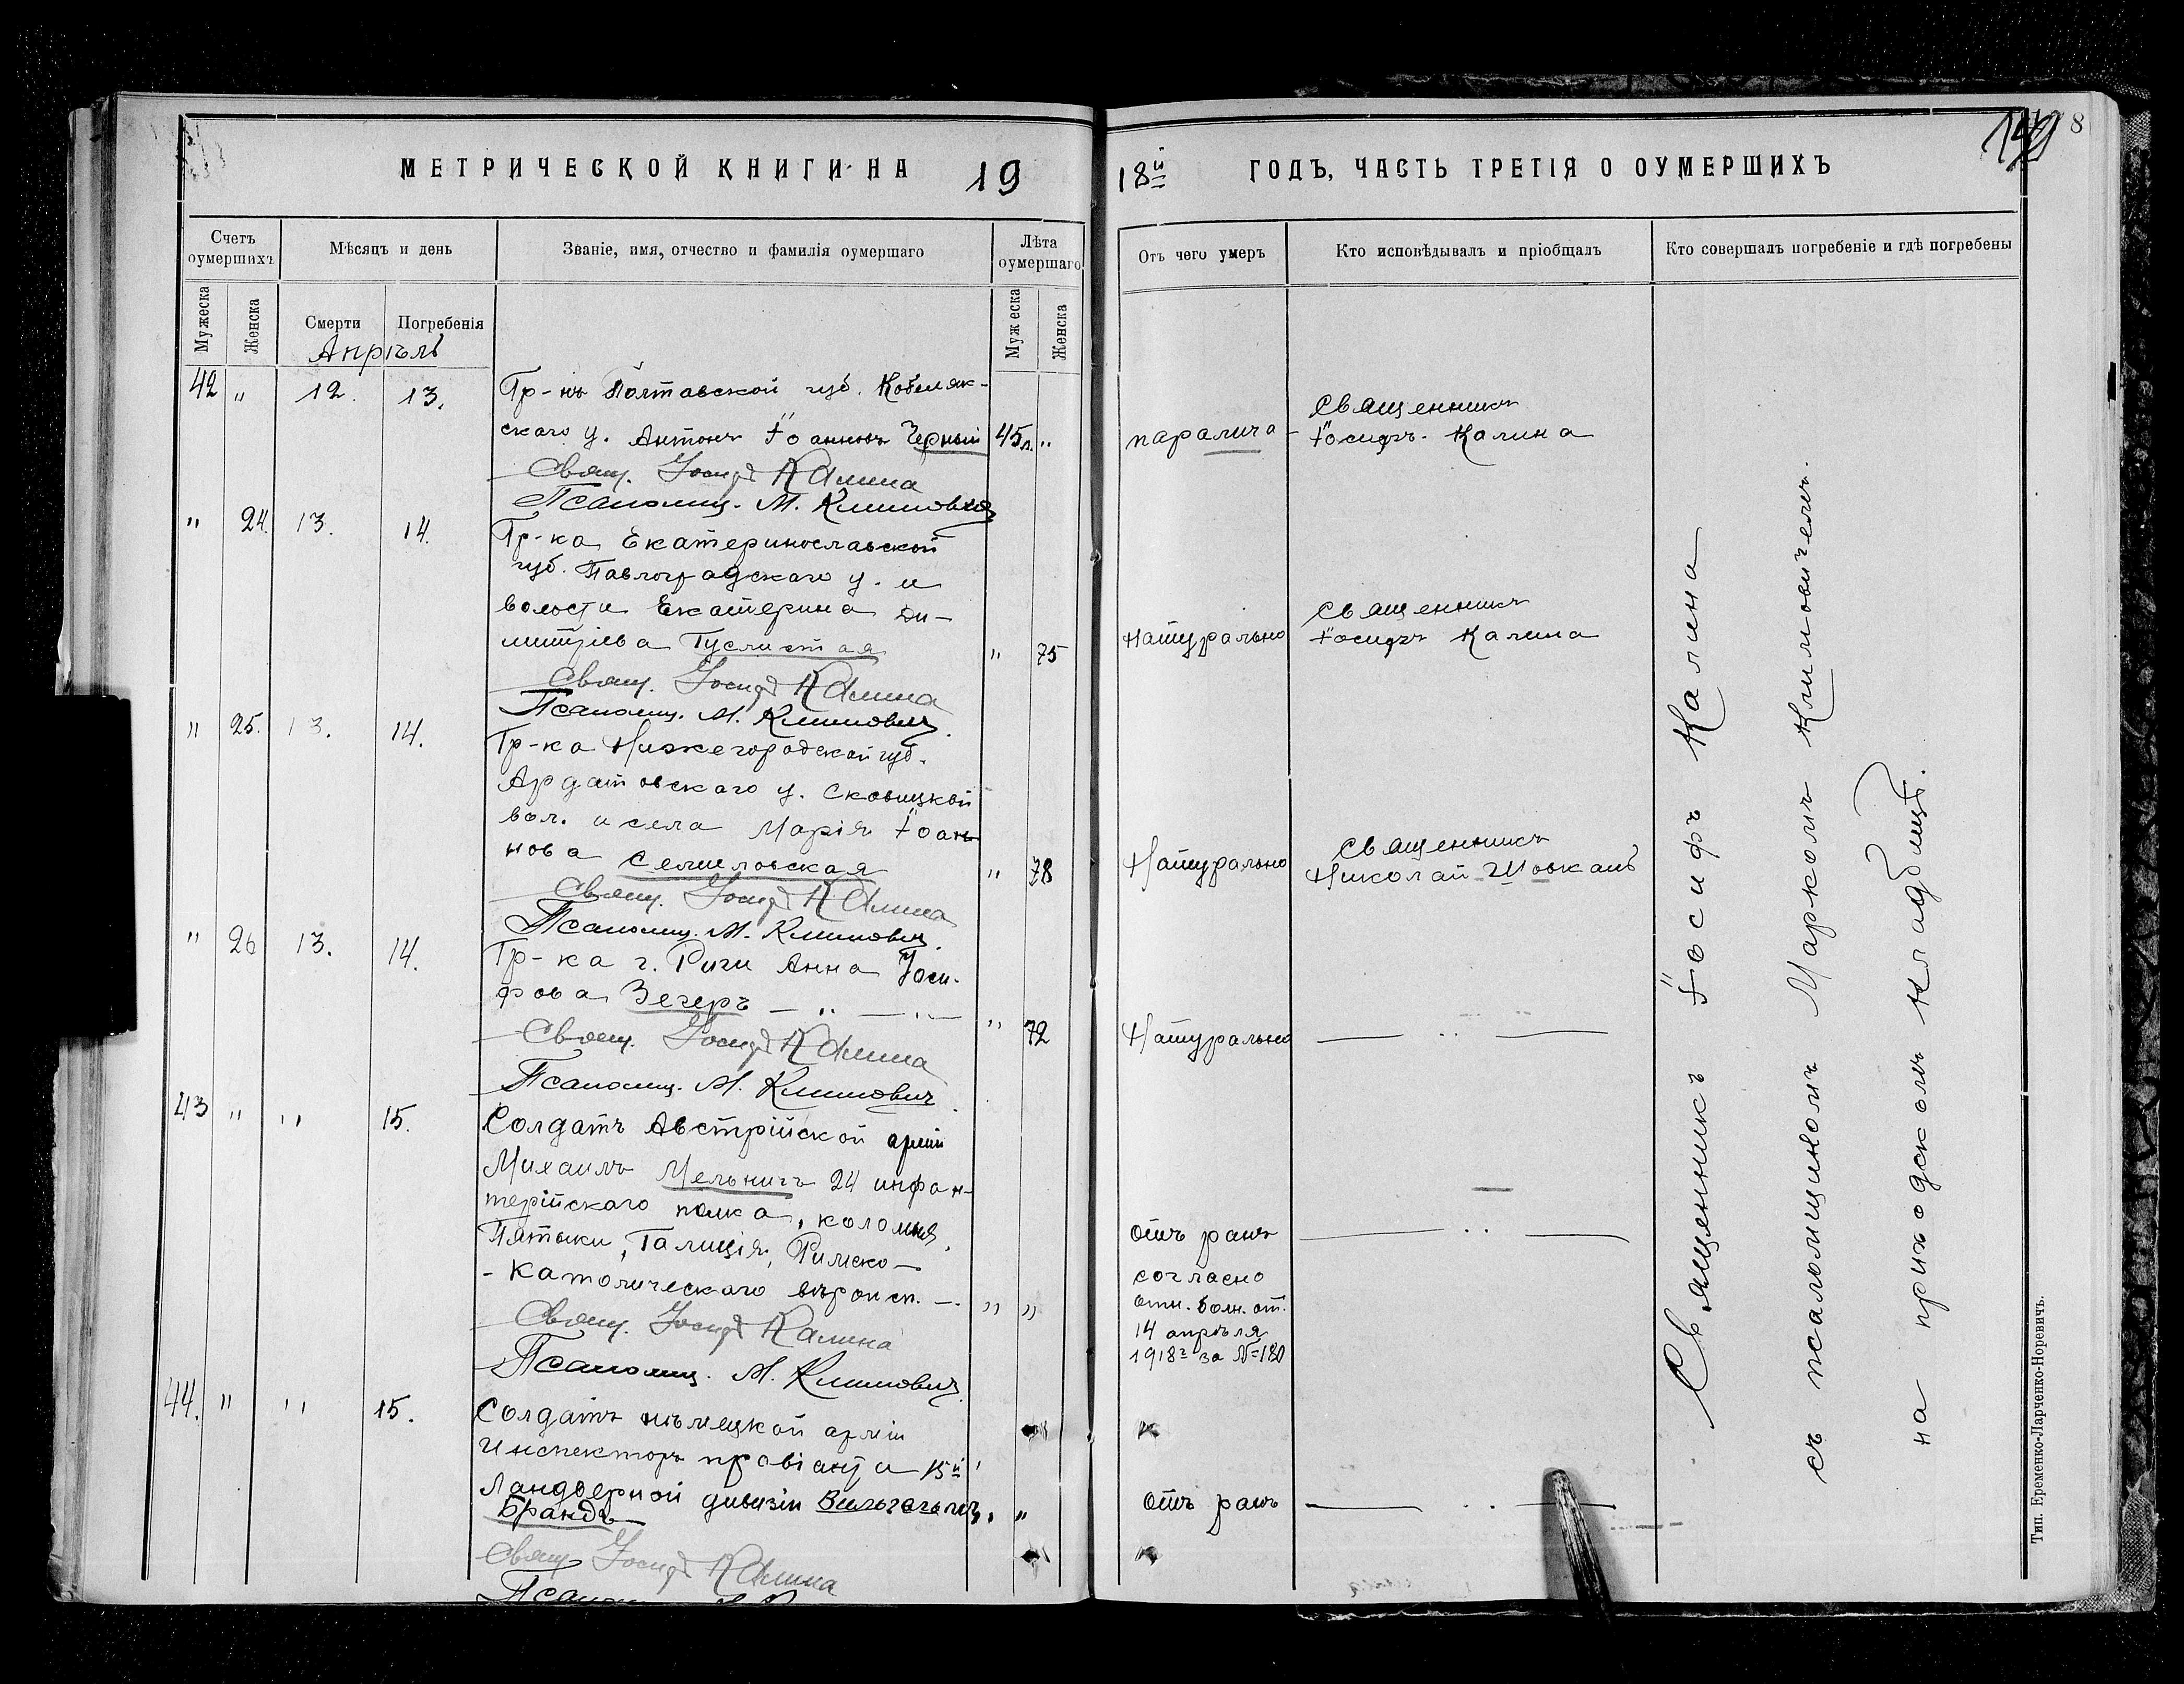 МЕТРИЧЕСКОЙ КНИГИ НА 19
Счетъ оумершихъ
Мѣсяцъ и день
Званіе, имя, отчество и фамилія оумершаго
Лѣта оумершаго
Мужеска
Женска
Смерти
Погребенія
Муж еска
Женска
Апрѣль
42 " 12. 13. Гр-нъ Полтавской губ. Кобеляк-
скаго у. Антонъ Іоанновъ Черный 45л. "
Свящ. Іосифъ Калина
Псаломщ. М. Климович
" 24. 13. 14. Гр-ка Екатеринославской
губ. Павлоградскаго у. и
волости Екатерина Ди-
митріева Гуслистая " 75
Свящ. Іосифъ Калина
Псаломщ. М. Климович.
" 25. 13. 14. Гр-ка Нижегородской губ.
Ардатовскаго у.
вол. и села Марія Іоан-
нова Семиловская " 78
Свящ. Іосифъ Калина
Псаломщ. М. Климович.
" 26 13. 14. Гр-ка г. Риги Анна Іоси-
фова Зегеръ — " — " — " 72
Свящ. Іосифъ Калина
Псаломщ. М. Климович.
43 " " 15. Солдатъ Австрійской арміи
Михаилъ Мельничъ 24 инфан-
терійскаго полка, коломыя,
Пятыки, Галиція, Римско-
-католическаго вѣроисп. —. " "
Свящ. Іосифъ Калина
Псаломщ. М. Климович.
44. " " 15. Солдатъ нѣмецкой арміи
Инспекторъ провіанта 15й
Ландверной дивизіи Вильгельмъ " "
Брандъ
Свящ. Іосифъ Калина
18й ГОДЪ, ЧАСТЬ ТРЕТІЯ О ОУМЕРШИХЪ
8
Отъ чего умеръ
Кто исповѣдывалъ и пріобщалъ
Кто совершалъ погребеніе и гдѣ погребены
паралича
Священникъ
Іосифъ Калина
Натурально
Священникъ
Іосифъ Калина
Натурально
Священникъ
Николай Шовкань
Натурально — " —
Отъ ранъ — " —
согласно
отн. болн. от.
14 апрѣля
1918г за №180
Отъ ранъ — " —
Священникъ Іосифъ Калина
съ псаломщикомъ Маркомъ Климовичемъ.
на приходскомъ кладбищѣ.
Тип. Еременко-Ларченко-Норевичъ.